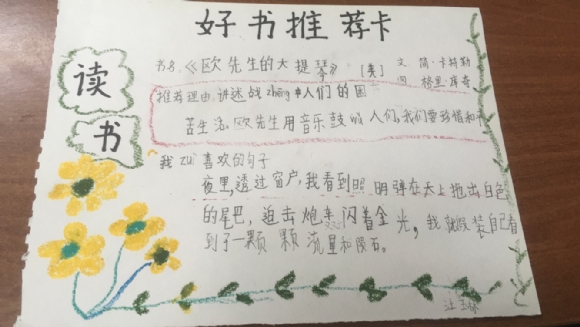 好书推荐卡
读书
书名:《欧先生的大提琴》 [美] 文 简·卡特勒
图 格里·库奇
推荐理由:讲述战zhēng中人们的困
苦生活,欧先生用音乐鼓励人们,我们要珍惜和平
我zuì喜欢的句子
夜里,透过窗户,我看到照明弹在天上拖出白色
的尾巴,迫击炮车闪着金光,我就假装自己看
到了一颗颗流星和陨石。